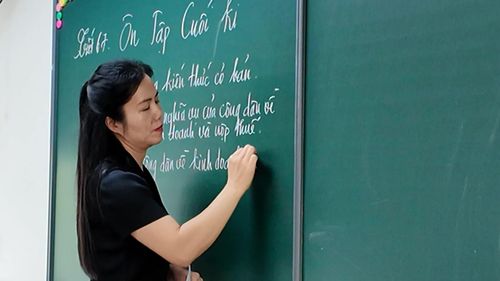 Tiết 67. Ôn Tập Cuối kì
kiến thức cơ bản.
nghĩa vụ của công dân về
doanh và nộp thuế.
công dân về kinh doa